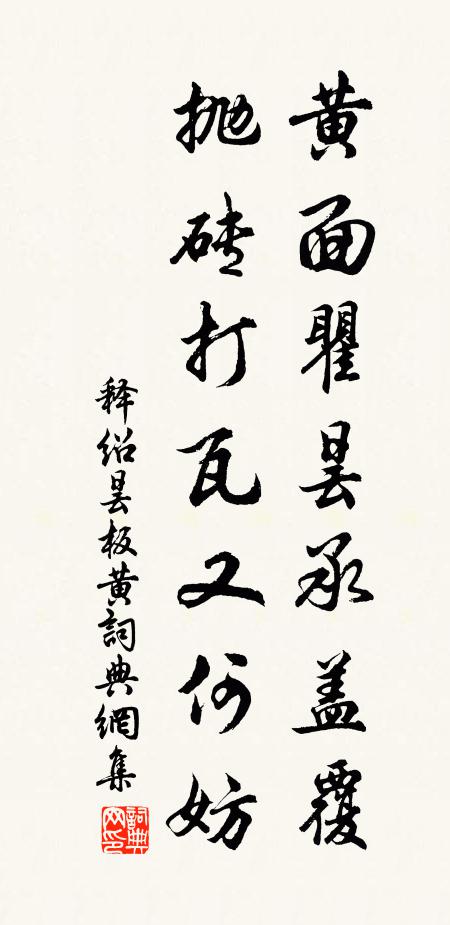 黄面瞿昙承盖覆
抛砖打瓦又何妨
释绍昙板黄詞典網集
詞典
网印